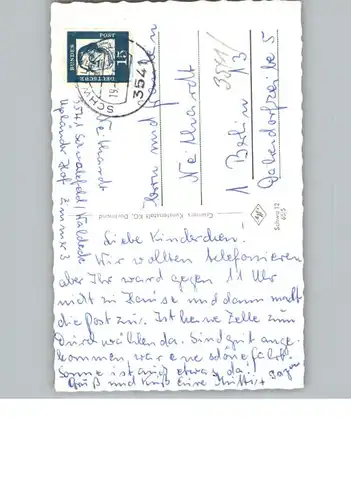 Liebe Kinderchen!
Wir wollten telefonieren
aber Ihr ward gegen 11 Uhr
nicht zu Hause und dann macht
die Post zu. Ist keine Zelle zum
Durchwählen da. Sind gut ange-
kommen war eine schöne Fahrt.
Sonne ist auch etwas da!
Gruß und Kuß Eure Mutti +
Neidhardt
3541 Schwalefeld/Waldeck
Upländer Hof Zimmer 3
DEUTSCHE
BUNDES
POST
15
3541
Herrn und Frau
Neidhardt
1 Berlin 13
3541/
Cramers Kunstanstalt KG, Dortmund
Schwg 12